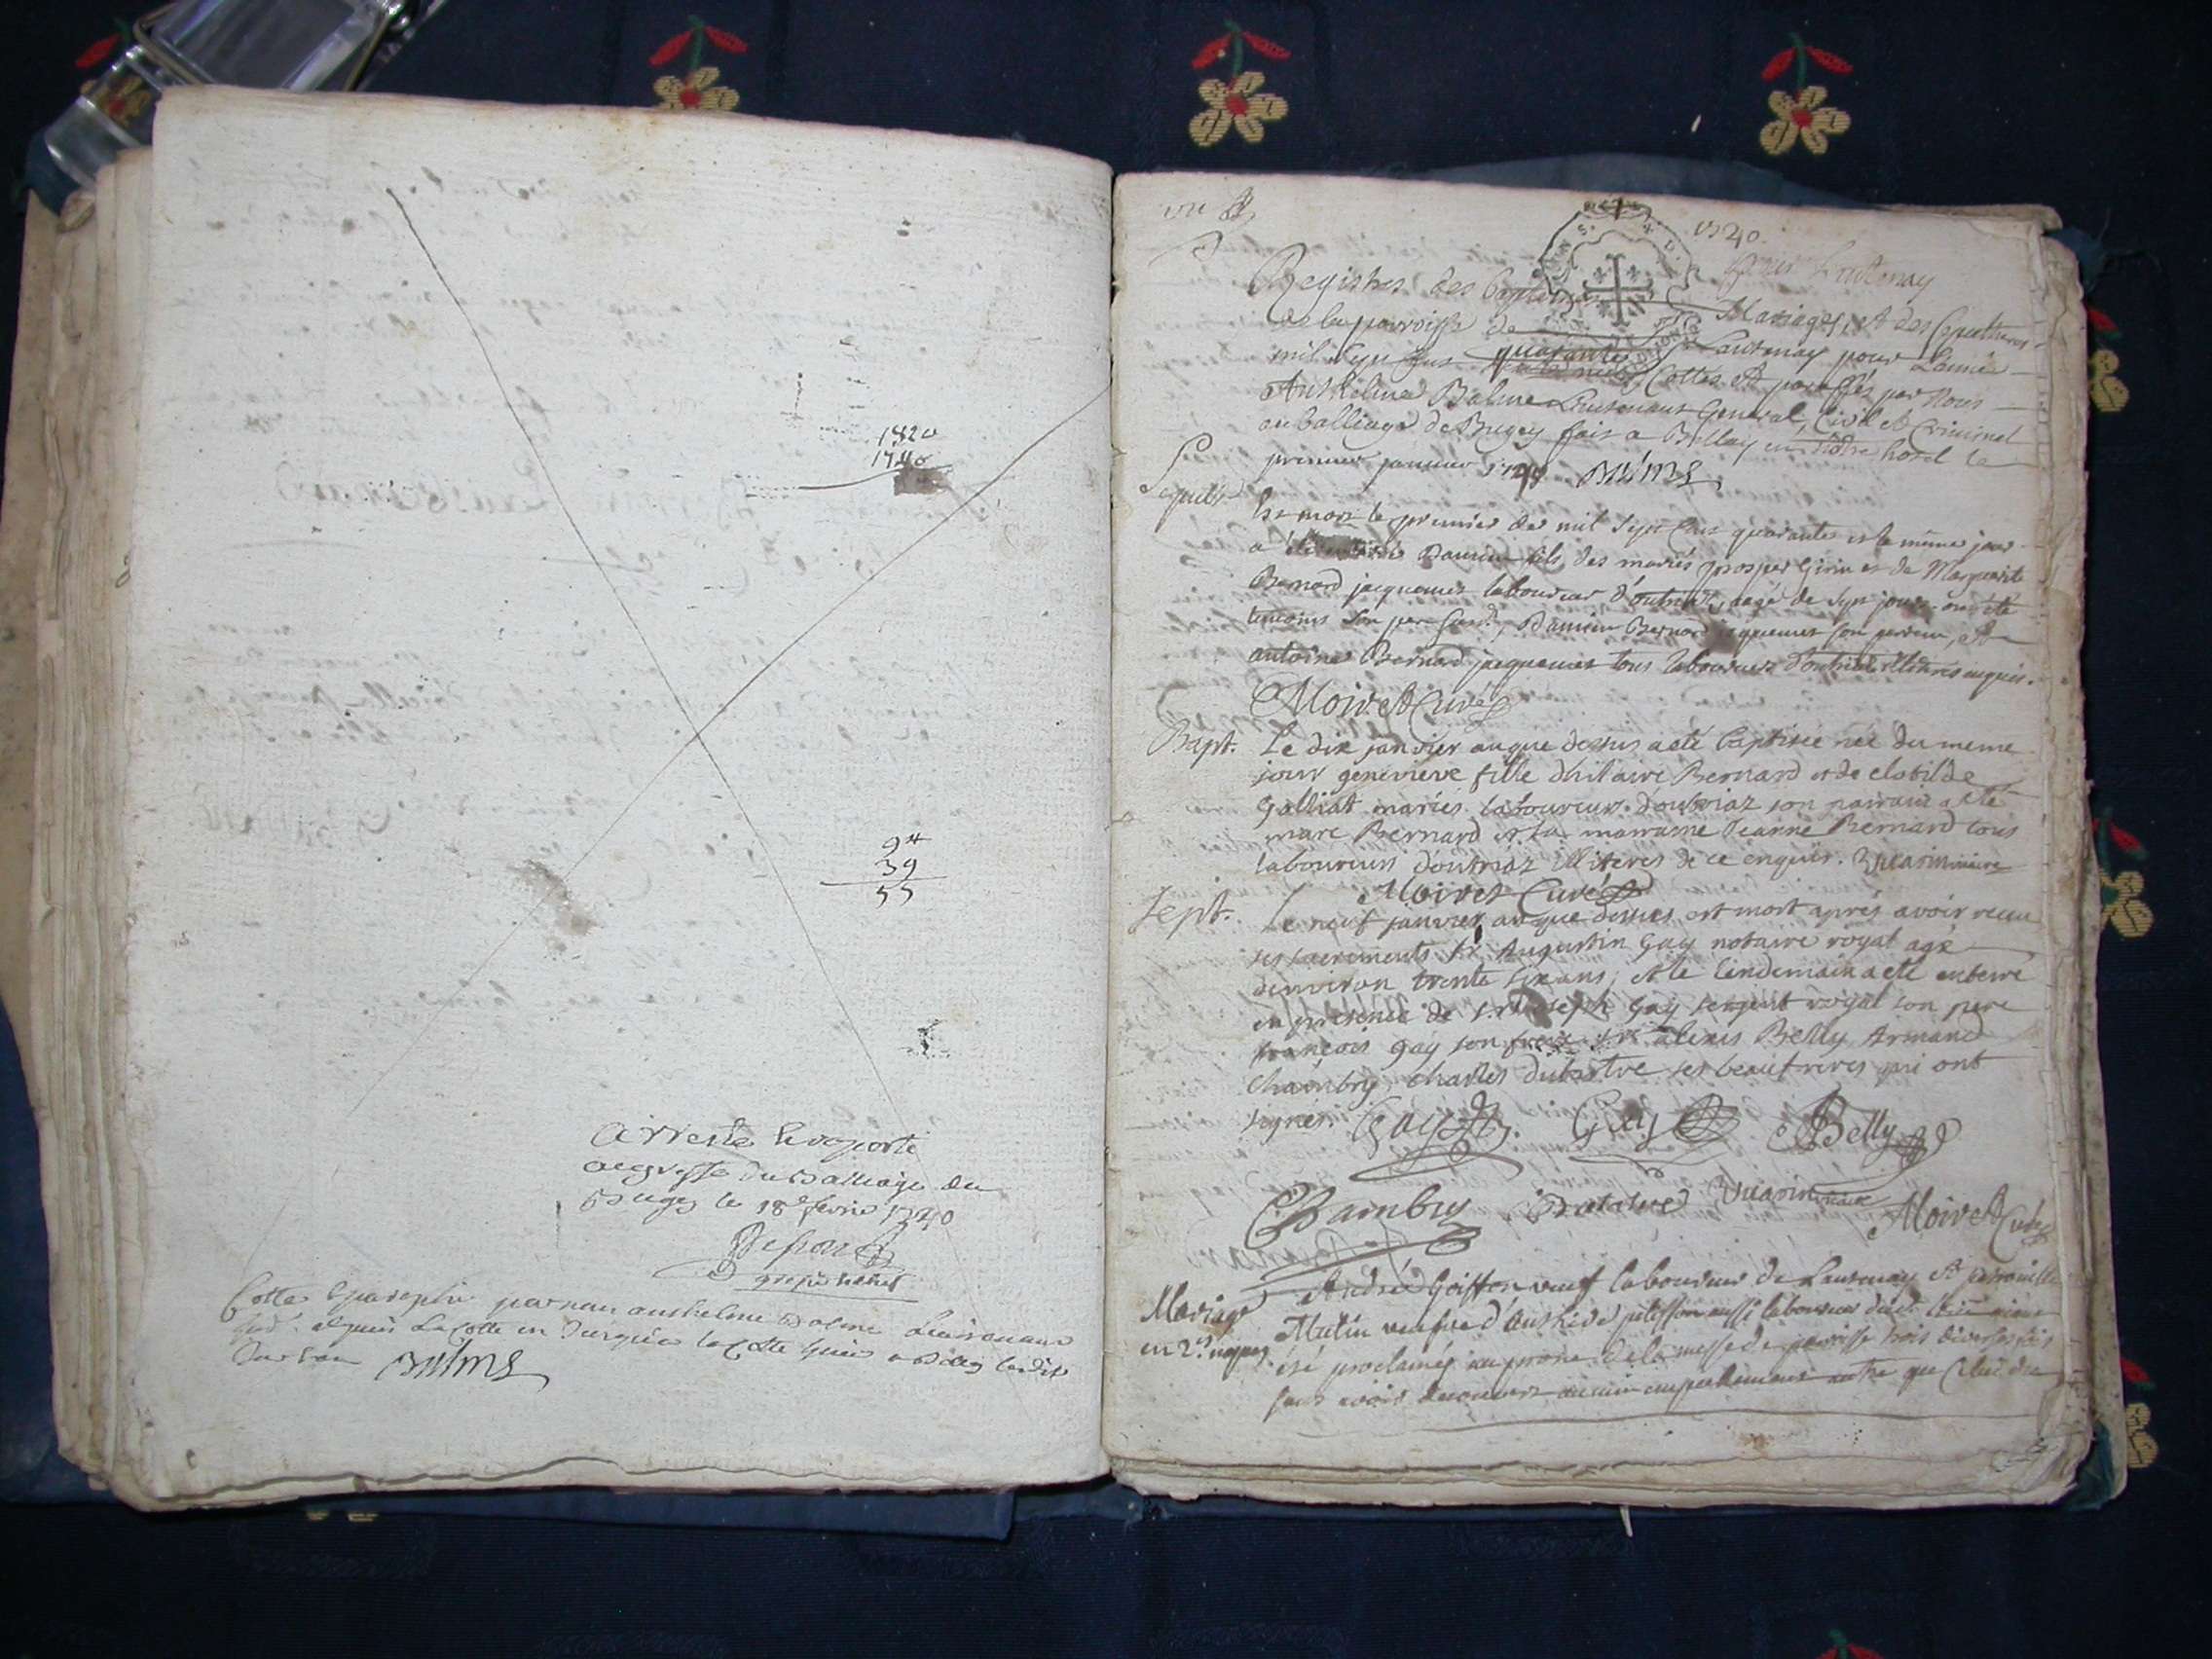 1820
1740
94
39
55
Arresté
au greffe du Balliage du
Bugey le 18e fevrie 1740
Cotte par nous anthelme Balme Lieutenant
Balme
1740
Registres des Baptemes Mariages, et des Sepultures
de la parroisse de Lantenay pour L'année
mil Sept Cens quarante Cottés et paraffés par Nous
Anthelme Balme Lieutenant General, Civil et Criminel
au balliage de Bugey fait a Bellay en Notre hotel le
premier janvier 1740 Balme
Sepult.
Est mort le premier de mil Sept Cens quarante et le même jour
a été enterré Damien fils des mariés prosper Girin et de Marguerite
Bernard jacquemet laboureur d'outriaz, agé de Sept jours. ont été
temoins Son pere Susd., Damien Bernard jacquemet Son parrein, et
antoine Bernard jacquemet tous laboureurs d'outriaz illiteres enquis.
Moiret Curé
Bapt. Le dix janvier an que dessus a eté baptisée née du meme
jour genevieve fille d'hilaire Bernard et de clotilde
Galliat mariés laboureur d'outriaz son parrain a eté
marc Bernard et sa marraine Jeanne Bernard tous
laboureurs d'outriaz illiteres de ce enquis. Vucarin vicaire
Moiret Curé
Sept. Le neuf janvier an que dessus est mort aprés avoir recu
ses sacrements Sr Augustin Gay notaire royal agé
denviron trente six ans; et le lendemain a eté enterré
en presence de Sr Joseph Gay sergent royal son pere
francois gay son frere Srs alexis Belly Armand
Chambry, charles dubatre ses beaufreres qui ont
signés. Gay Gay Belly
Chambry Vucarin vicaire Moiret Curé
Mariage
en 2es nopces
André Goiffon veuf laboureur de Lantenay et perronnette
Mutin veufve d'Anthide pelisson aussi laboureur dud. lieu aiant
été proclamés au prone de la messe de paroisse trois diverses fois
sans avoir decouvert aucun empechement autre que Celui du